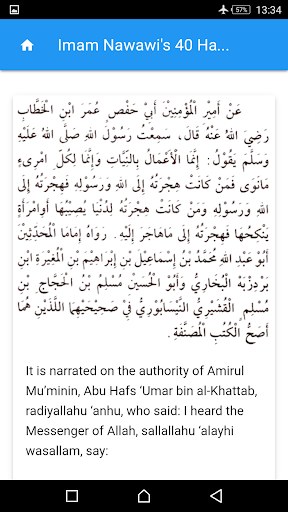 57% 13:34
Imam Nawawi's 40 Ha...
عَنْ أَمِيْرِ الْمُؤْمِنِيْنَ أَبِيْ حَفْصٍ عُمَرَ ابْنِ الْخَطَّابِ
رَضِيَ اللهُ عَنْهُ قَالَ، سَمِعْتُ رَسُوْلَ اللهِ صَلَّى اللهُ عَلَيْهِ
وَسَلَّمَ يَقُوْلُ: إِنَّمَا الْأَعْمَالُ بِالنِّيَّاتِ وَإِنَّمَا لِكُلِّ امْرِيءٍ
مَانَوَى فَمَنْ كَانَتْ هِجْرَتُهُ إِلَى اللهِ وَرَسُوْلِهِ فَهِجْرَتُهُ إِلَى
اللهِ وَرَسُوْلِهِ وَمَنْ كَانَتْ هِجْرَتُهُ لِدُنْيَا يُصِيْبُهَا أَوِامْرَأَةٍ
يَنْكِحُهَا فَهِجْرَتُهُ إِلَى مَاهَاجَرَ إِلَيْهِ. رَوَاهُ إِمَامَا الْمُحَدِّثِيْنَ
أَبُوْ عَبْدِ اللهِ مُحَمَّدُ بْنُ إِسْمَاعِيْلَ بْنِ إِبْرَاهِيْمَ بْنِ الْمُغِيْرَةِ ابْنِ
بَرْدِزْبَهْ الْبُخَارِيُّ وَأَبُو الْحُسَيْنِ مُسْلِمُ بْنُ الْحَجَّاجِ بْنِ
مُسْلِمٍ الْقُشَيْرِيُّ النَّيْسَابُوْرِيُّ فِيْ صَحِيْحَيْهِمَا اللَّذَيْنِ هُمَا
أَصَحُّ الْكُتُبِ الْمُصَنَّفَةِ.
It is narrated on the authority of Amirul
Mu'minin, Abu Hafs 'Umar bin al-Khattab,
radiyallahu 'anhu, who said: I heard the
Messenger of Allah, sallallahu 'alayhi
wasallam, say: